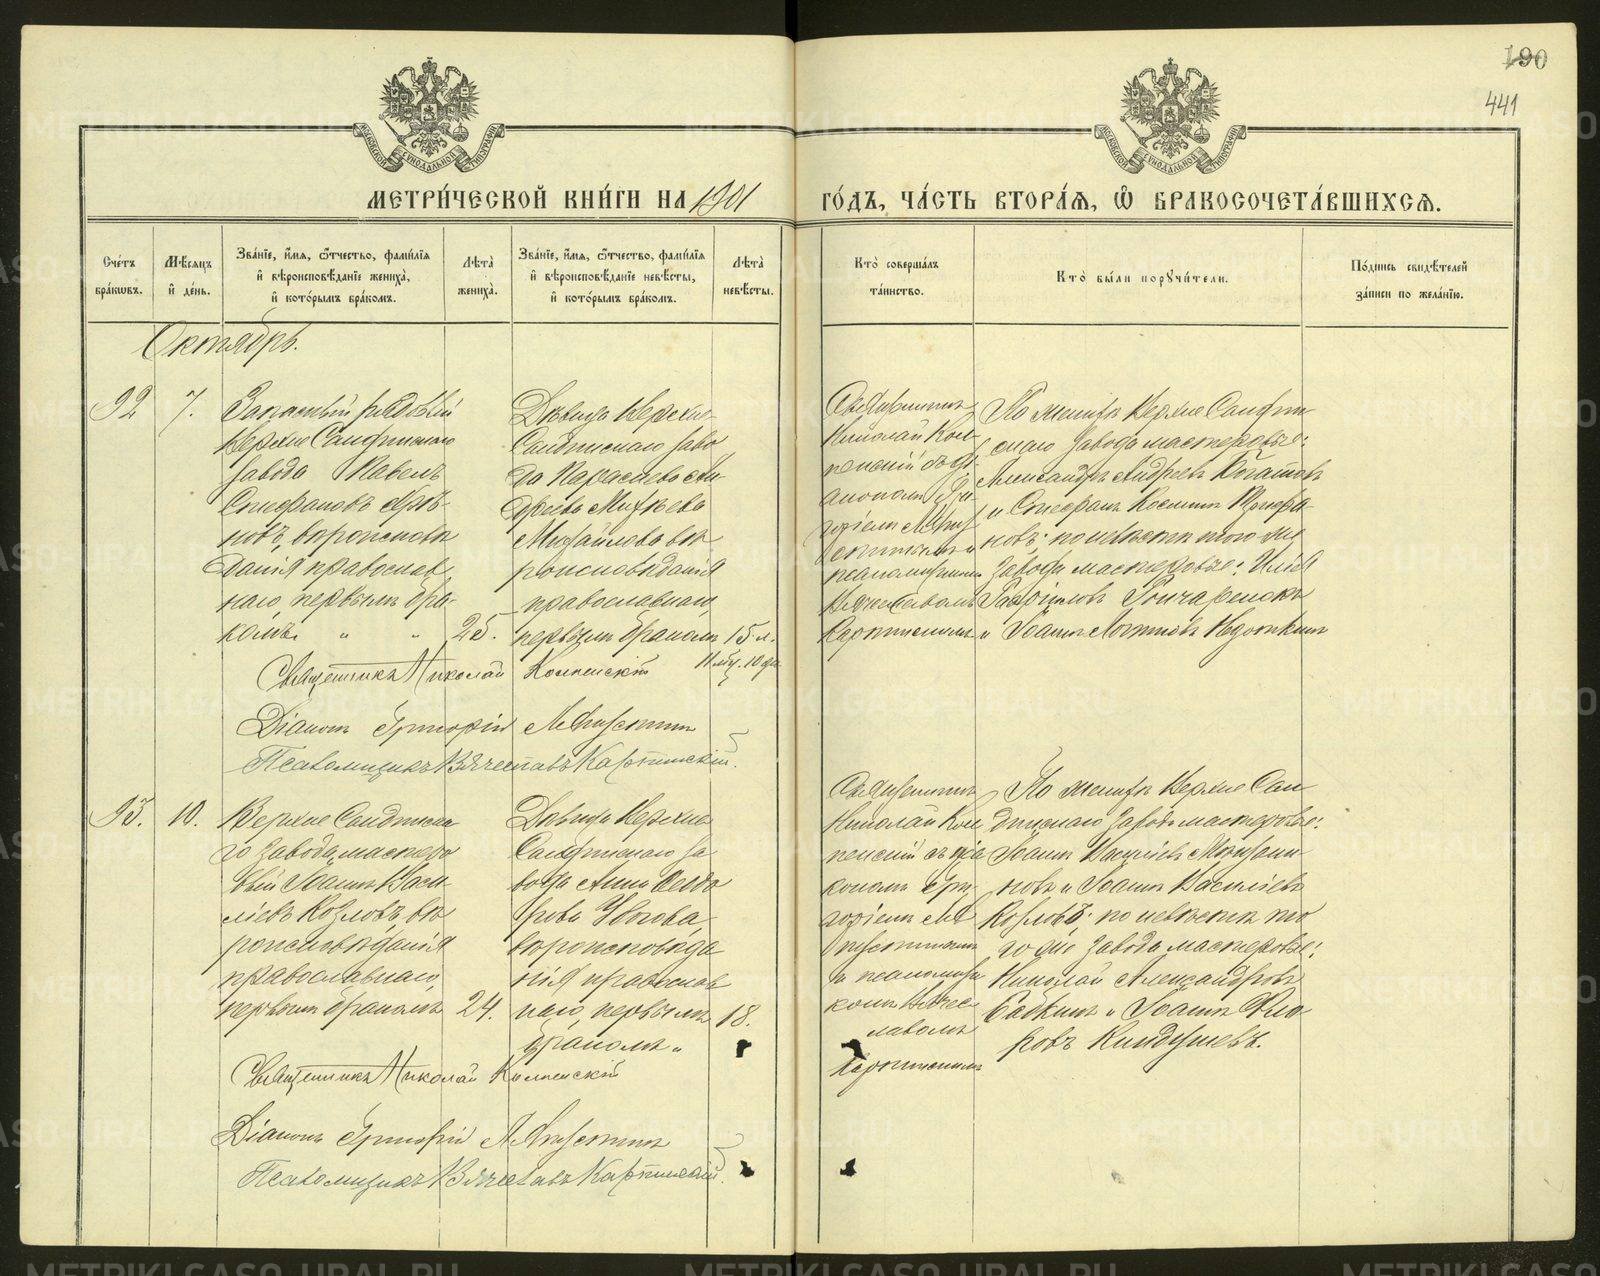 190
441
МОСКОВСКОЙ СѴНОДАЛЬНОЙ ТИПОГРАФІИ
МОСКОВСКОЙ СѴНОДАЛЬНОЙ ТИПОГРАФІИ
МЕТРИ́ЧЕСКОЙ КНИ́ГИ НА 1901 ГО́ДЪ, ЧА́СТЬ ВТОРА́Я, Ѽ БРАКОСОЧЕТА́ВШИХСЯ.
Сче́тъ бра́кѡвъ.
Мѣ́сяцъ и҆ де́нь.
Зва́нїе, и҆́мя, ѻ҆́тчество, фами́лїя и҆ вѣроисповѣ́данїе жениха̀, и҆ кото́рымъ бра́комъ.
Лѣ́та жениха̀.
Зва́нїе, и҆́мя, ѻ҆́тчество, фами́лїя и҆ вѣроисповѣ́данїе невѣ́сты, и҆ кото́рымъ бра́комъ.
Лѣ́та невѣ́сты.
Кто̀ соверша́лъ та́инство.
Кто̀ бы́ли порꙋчи́тели.
По́дпись свидѣ́телей за́писи по жела́нїю.
Октябрь.
92
7.
Запасный рядовый
Верхне Салдинскаго
завода Павелъ
Стефановъ
новъ, вѣроисповѣ
данія православ
наго, первымъ бра-
комъ. " "
25.
Дѣвица Верхне
Салдинскаго заво
да Параскева Ан
дреева
Михайлова вѣ
роисповѣданія
православнаго,
первымъ бракомъ
15 л.
11 мѣс. 10 дн.
Священникъ
Николай Кол
пенскій съ ді
акономъ Гри
горіемъ
и
псаломщикомъ
Вячеславомъ
Карпинскимъ
По женихѣ Верхне Салдин
скаго завода мастеровые:
Александръ Андреевъ Богатовъ
и Стефанъ Косминъ
новъ; по невѣстѣ того же
завода мастеровые: Илія
Гавріиловъ Гончаренокъ
и Іоаннъ Логиновъ
Священникъ Николай Колпенскій
Діаконъ Григорій
Псаломщикъ Вячеславъ Карпинскій.
93.
10.
Верхне Салдинска
го завода, мастеро
вый Іоаннъ Васи
ліевъ Козловъ, вѣ
роисповѣданія
православнаго,
первымъ бракомъ
24.
Дѣвица Верхне
Салдинскаго за
вода Анна Ѳеодо
рова
вѣроисповѣда
нія православ
наго, первымъ
бракомъ "
18.
Священникъ
Николай Кол
пенскій съ діа
кономъ Гри
горіемъ
и псаломщи
комъ Вячес
лавомъ
Карпинскимъ
По женихѣ Верхне Сал
динскаго завода мастеровые:
Іоаннъ Василіевъ
новъ и Іоаннъ Василіевъ
Козловъ; по невѣстѣ то
го же завода мастеровые:
Николай Александровъ
Бабкинъ и Іоаннъ Фло
ровъ
Священникъ Николай Колпенскій
Діаконъ Григорій
Псаломщикъ Вячеславъ Карпинскій.
METRIKI.GASO-URAL.RU